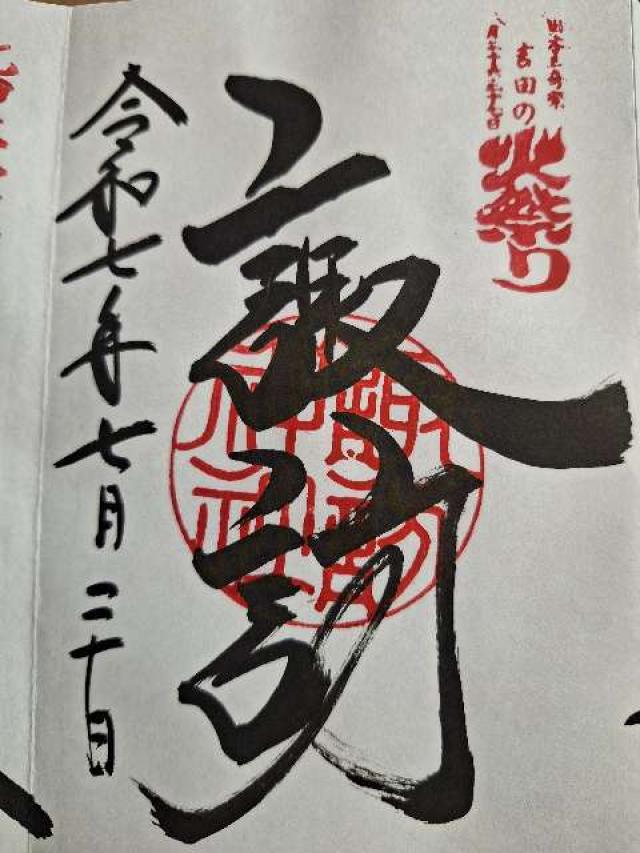 日本三奇祭
吉田の火祭り
八月二十六、二十七日
諏訪
諏訪
神社
令和七年七月二十日